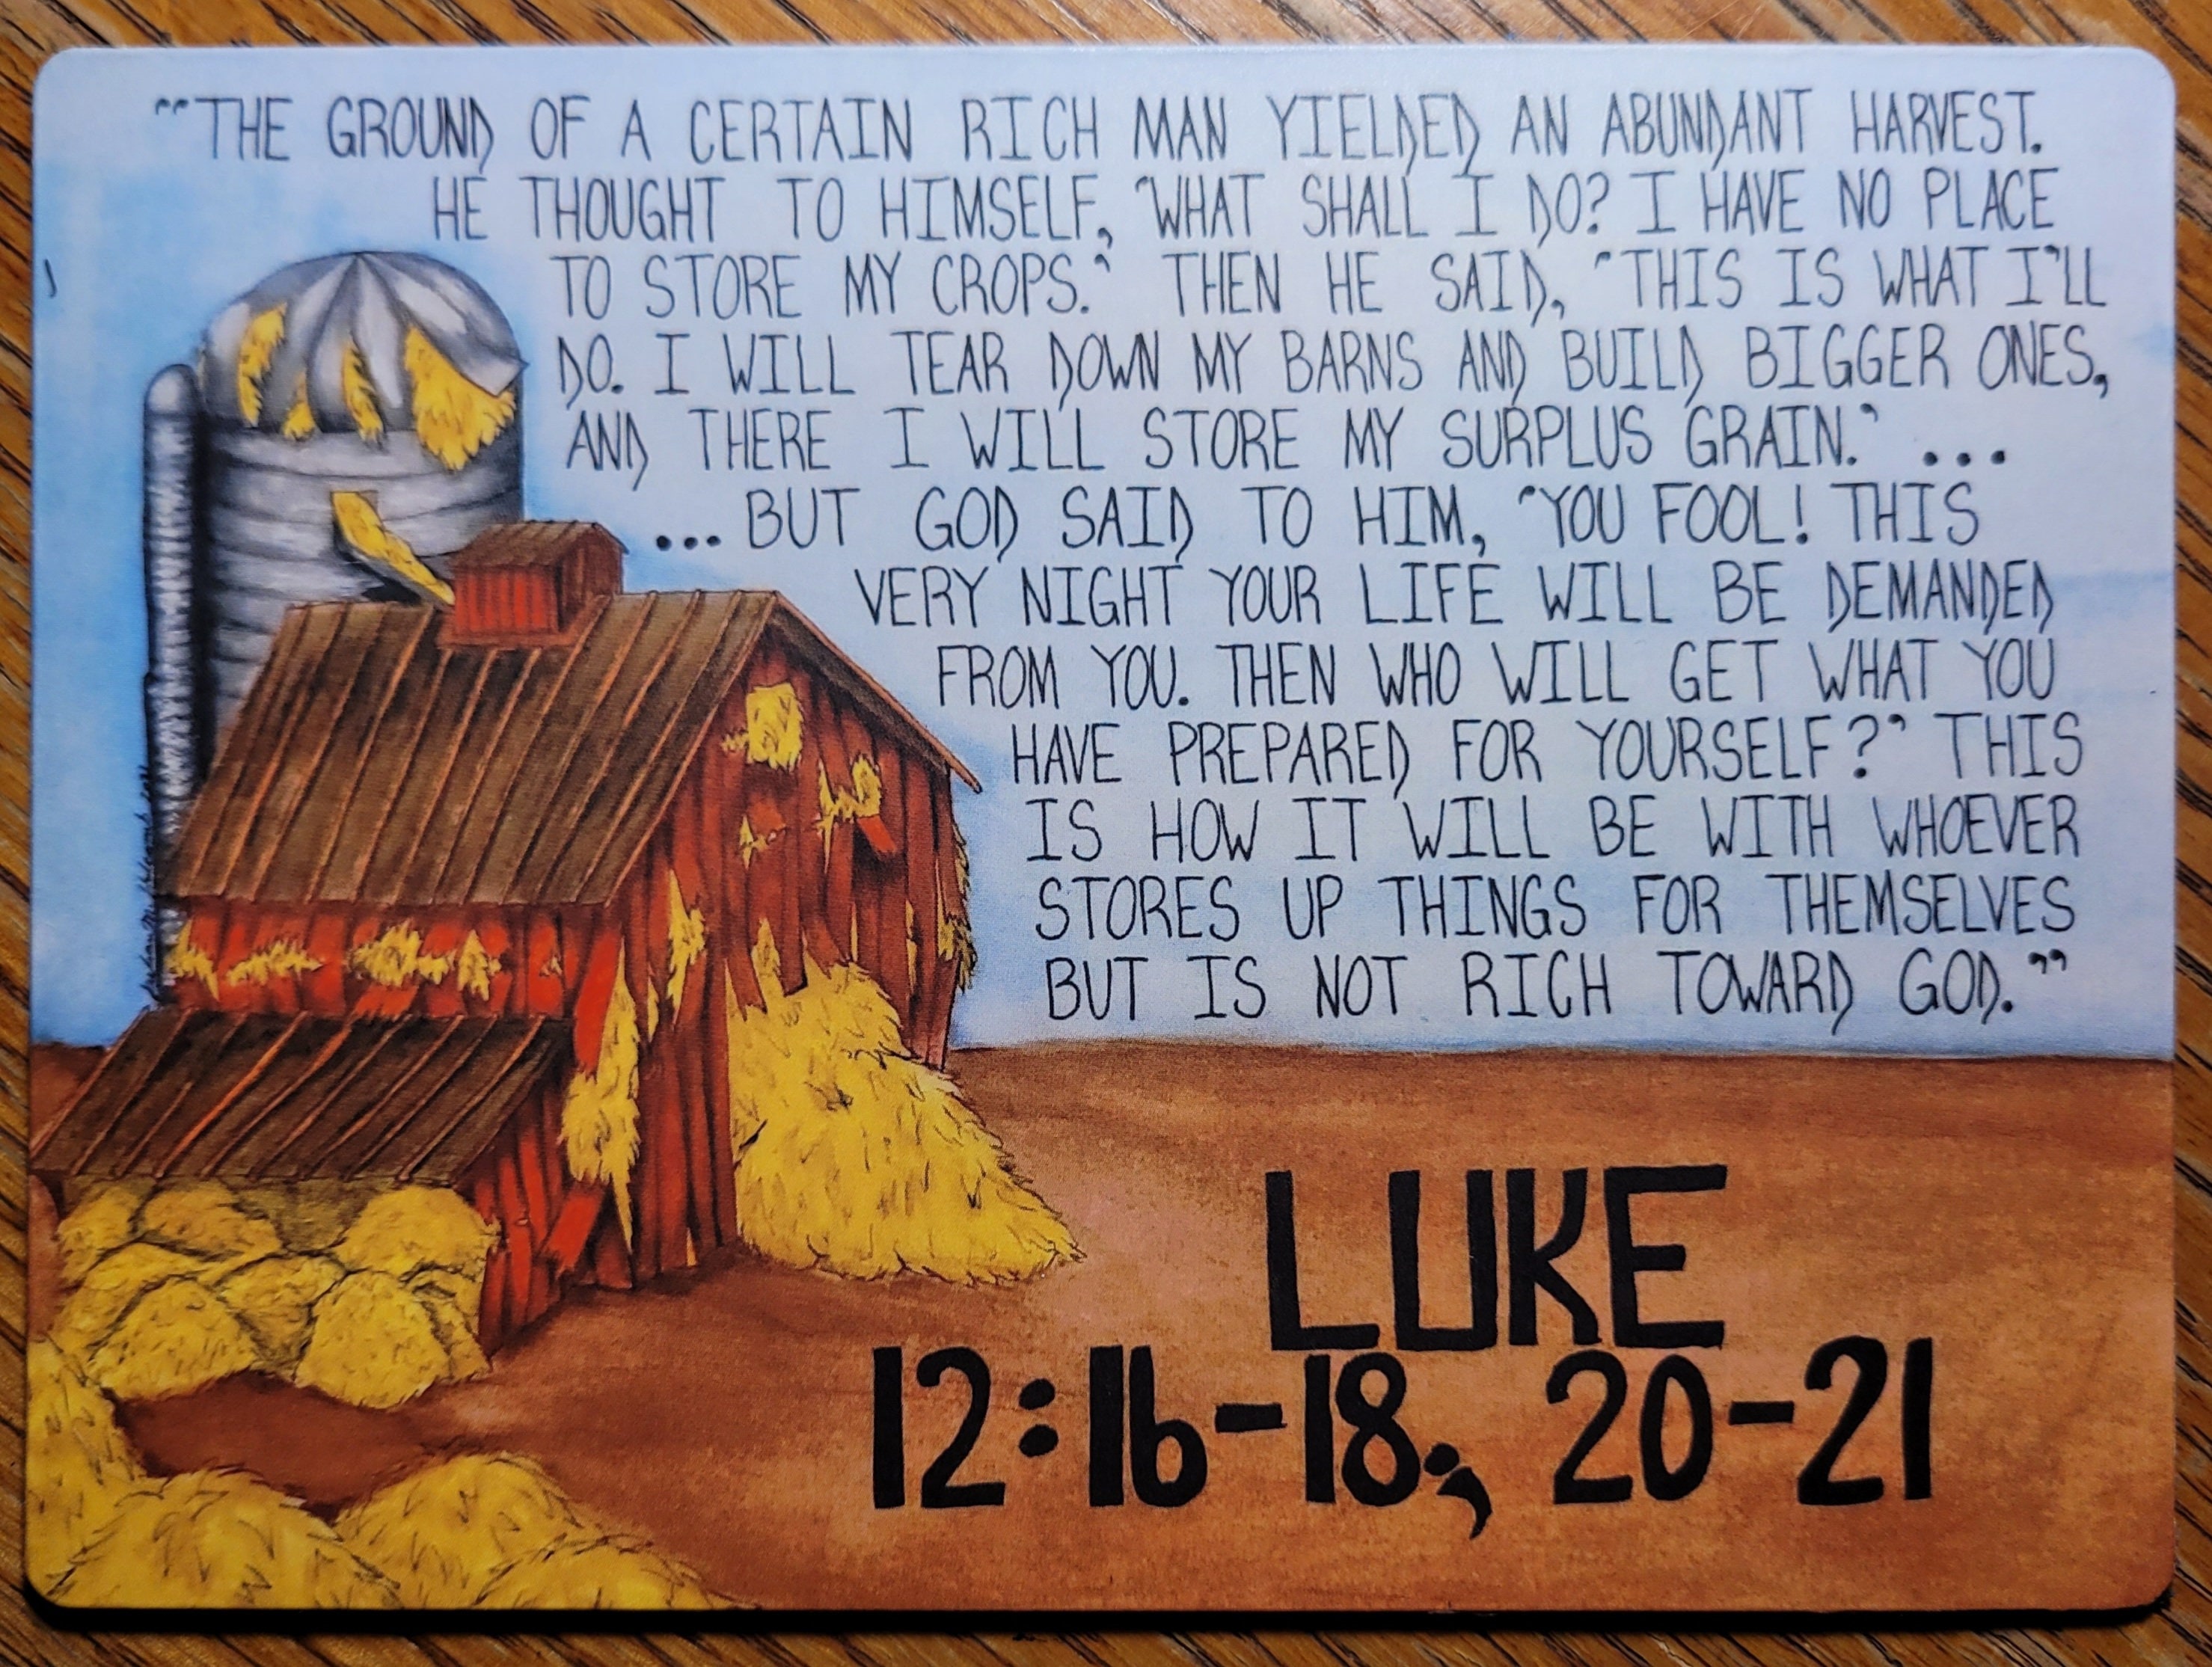 "THE GROUND OF A CERTAIN RICH MAN YIELDED AN ABUNDANT HARVEST.
HE THOUGHT TO HIMSELF, 'WHAT SHALL I DO? I HAVE NO PLACE
TO STORE MY CROPS.' THEN HE SAID, 'THIS IS WHAT I'LL
DO. I WILL TEAR DOWN MY BARNS AND BUILD BIGGER ONES,
AND THERE I WILL STORE MY SURPLUS GRAIN.' ...
...BUT GOD SAID TO HIM, 'YOU FOOL! THIS
VERY NIGHT YOUR LIFE WILL BE DEMANDED
FROM YOU. THEN WHO WILL GET WHAT YOU
HAVE PREPARED FOR YOURSELF?' THIS
IS HOW IT WILL BE WITH WHOEVER
STORES UP THINGS FOR THEMSELVES
BUT IS NOT RICH TOWARD GOD."
LUKE
12:16-18; 20-21